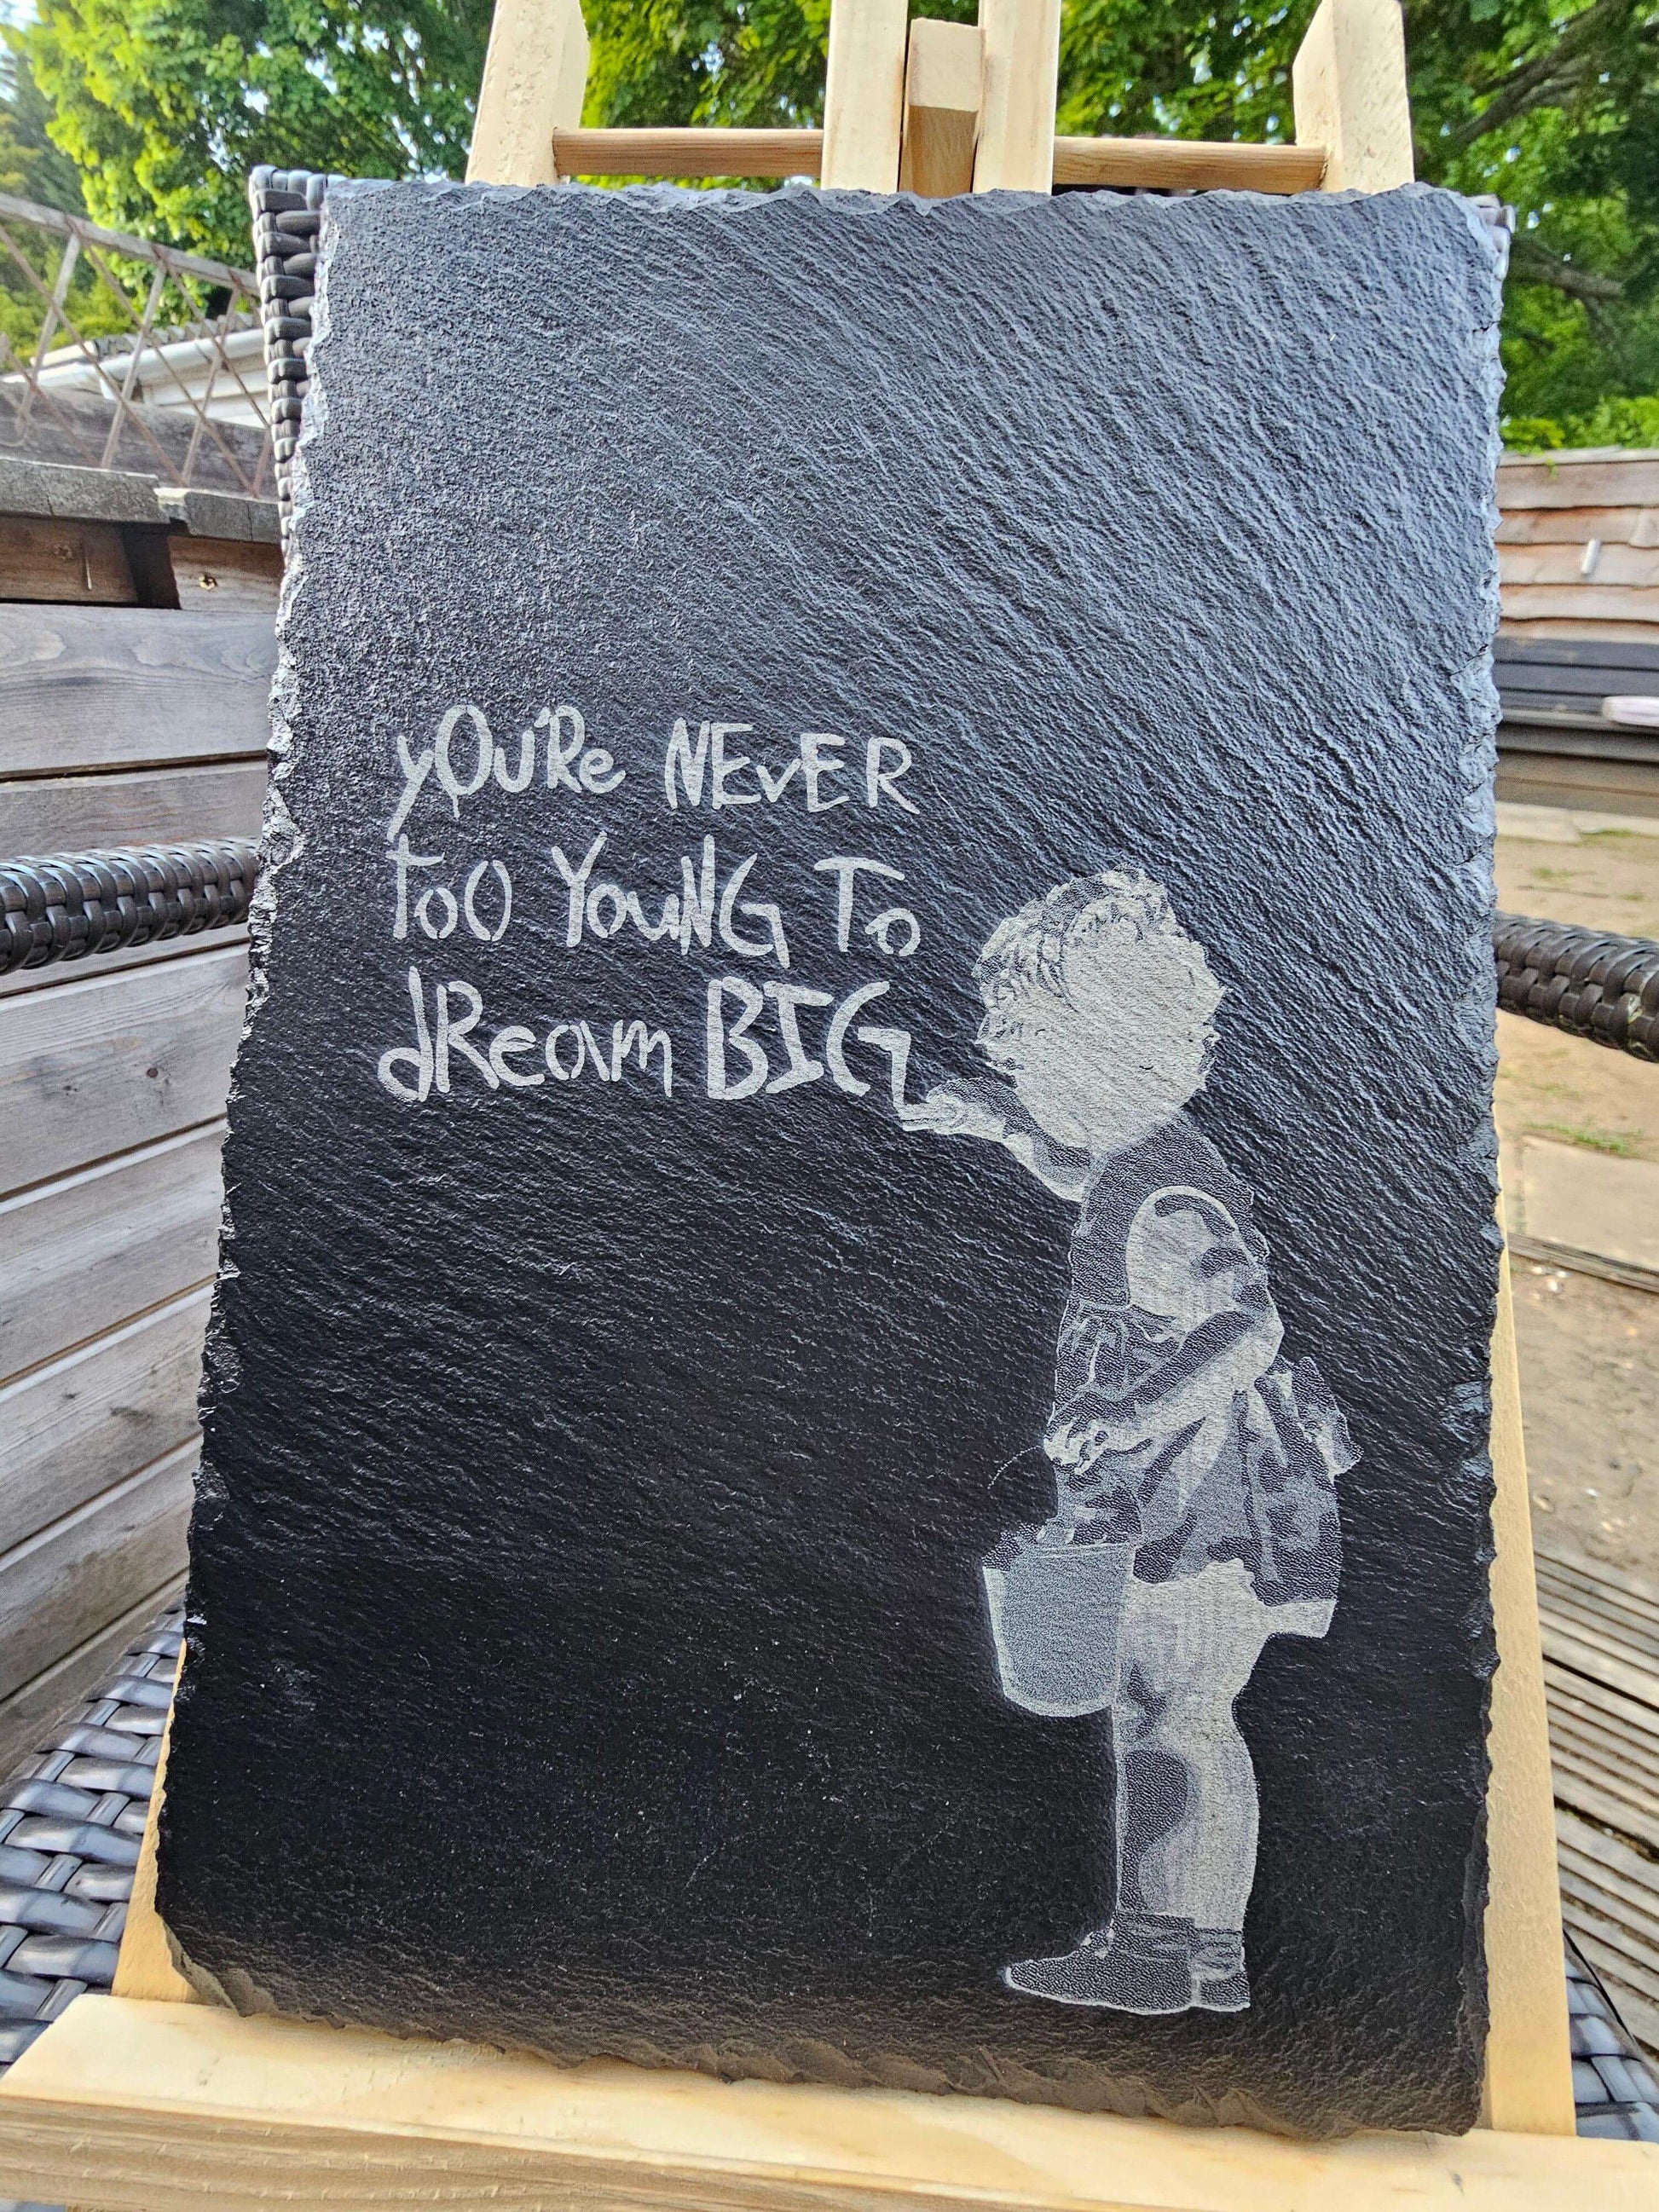 yOu'Re NEvER
Too YouNG To
dReam BIG